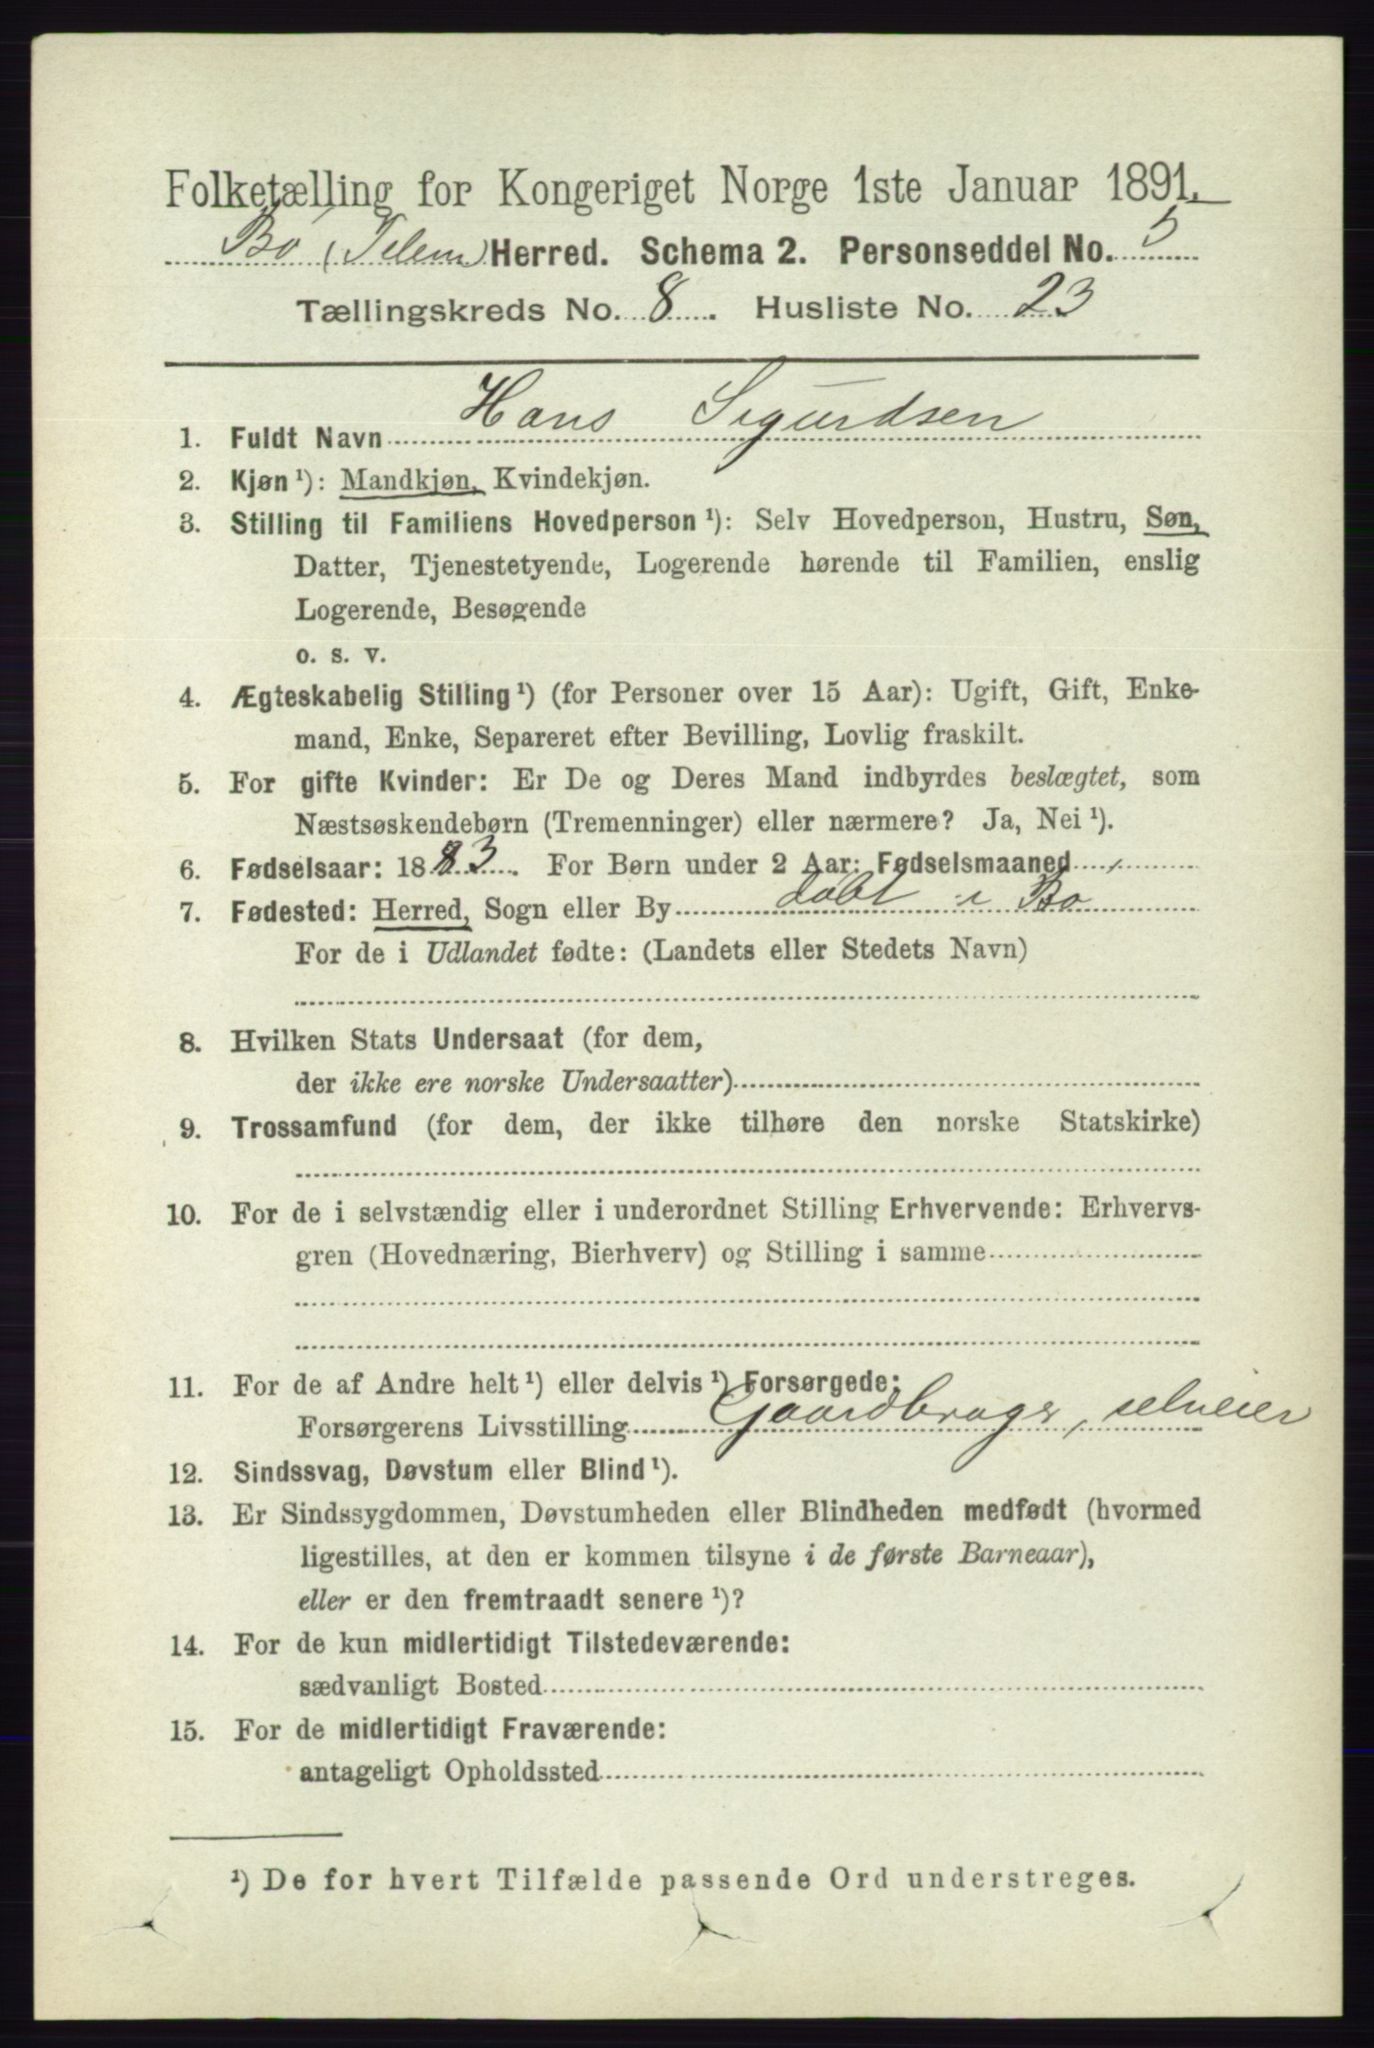 Folketælling for Kongeriget Norge 1ste Januar 1891.
Bø (Telem) Herred. Schema 2. Personseddel No. 5
Tællingskreds No. 8. Husliste No. 23
1. Fuldt Navn Hans Sigurdsen
2. Kjøn ¹): Mandkjøn, Kvindekjøn.
3. Stilling til Familiens Hovedperson ¹): Selv Hovedperson, Hustru, Søn,
Datter, Tjenestetyende, Logerende hørende til Familien, enslig
Logerende, Besøgende
o. s. v.
4. Ægteskabelig Stilling ¹) (for Personer over 15 Aar): Ugift, Gift, Enke-
mand, Enke, Separeret efter Bevilling, Lovlig fraskilt.
5. For gifte Kvinder: Er De og Deres Mand indbyrdes beslægtet, som
Næstsøskendebørn (Tremenninger) eller nærmere? Ja, Nei ¹).
6. Fødselsaar: 1883. For Børn under 2 Aar: Fødselsmaaned
7. Fødested: Herred, Sogn eller By døbt i Bø
For de i Udlandet fødte: (Landets eller Stedets Navn)
8. Hvilken Stats Undersaat (for dem,
der ikke ere norske Undersaatter)
9. Trossamfund (for dem, der ikke tilhøre den norske Statskirke)
10. For de i selvstændig eller i underordnet Stilling Erhvervende: Erhvervs-
gren (Hovednæring, Bierhverv) og Stilling i samme
11. For de af Andre helt ¹) eller delvis ¹) Forsørgede:
Forsørgerens Livsstilling Gaardbruger, selveier
12. Sindssvag, Døvstum eller Blind ¹).
13. Er Sindssygdommen, Døvstumheden eller Blindheden medfødt (hvormed
ligestilles, at den er kommen tilsyne i de første Barneaar),
eller er den fremtraadt senere ¹)?
14. For de kun midlertidigt Tilstedeværende:
sædvanligt Bosted
15. For de midlertidigt Fraværende:
antageligt Opholdssted
¹) De for hvert Tilfælde passende Ord understreges.